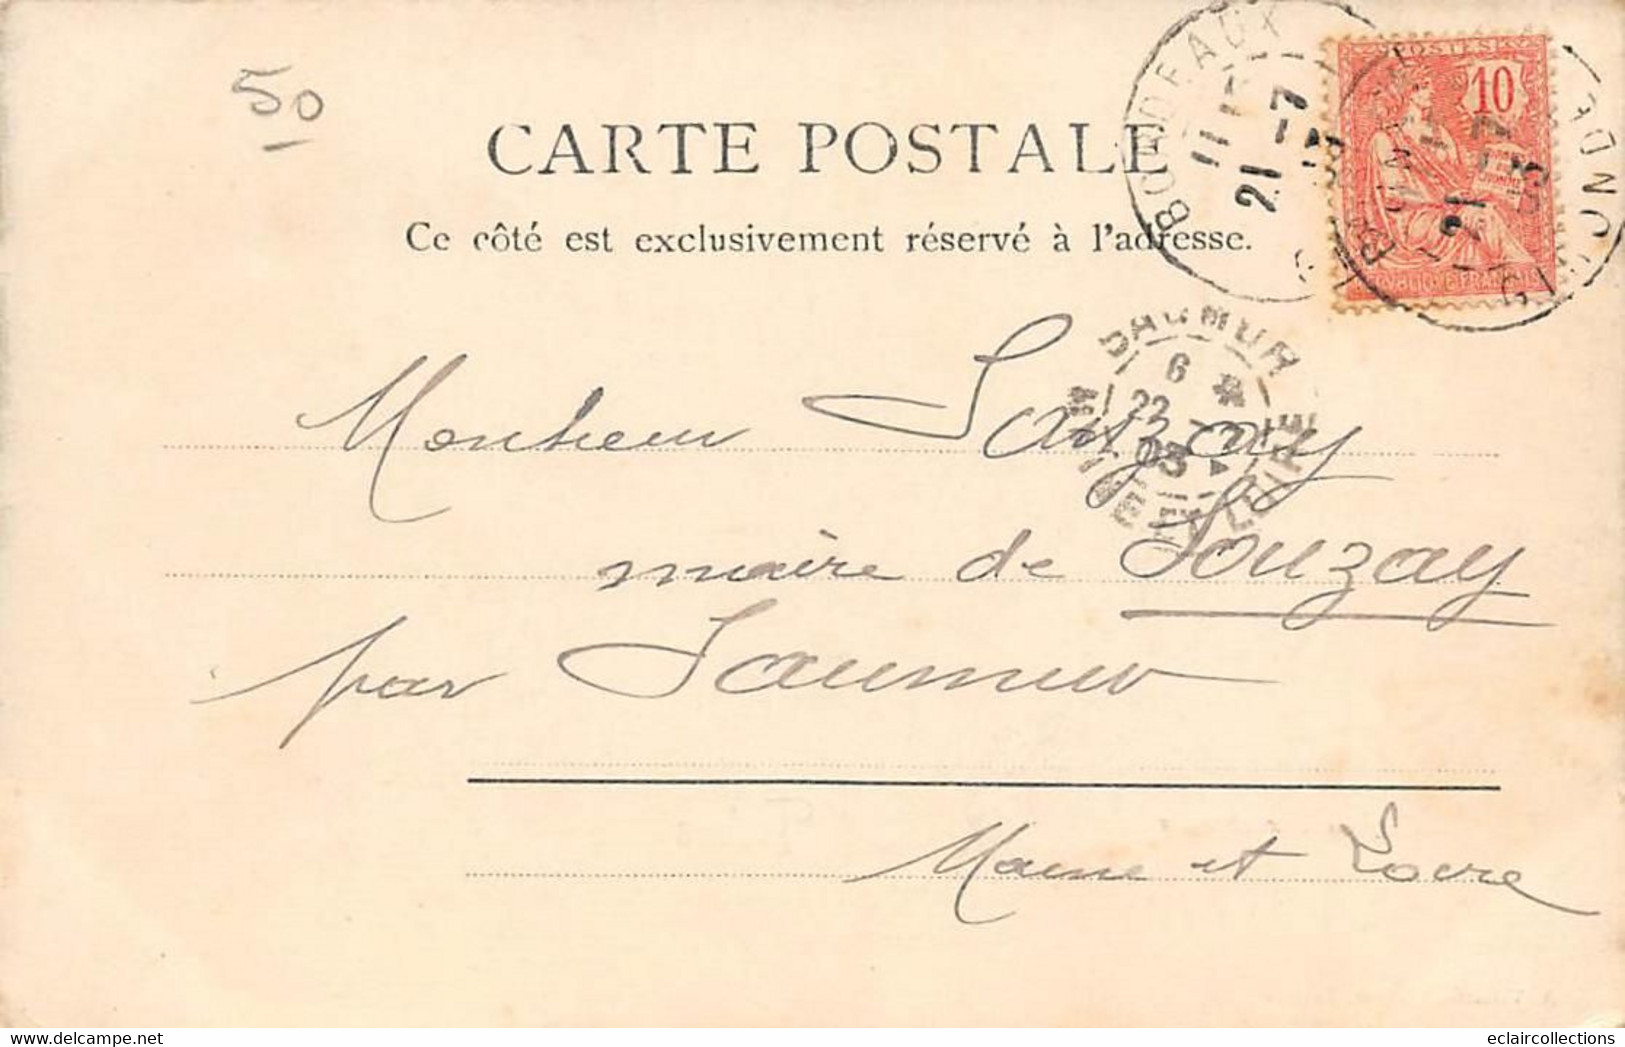 50
CARTE POSTALE
Ce côté est exclusivement réservé à l'adresse.
POSTES
10
BORDEAUX
21 -7
GIRONDE
21 -7
03
SAUMUR
6
22
03
MAINE ET LOIRE
Monsieur
maire de Souzay
par Saumur
Maine et Loire
eclaircollections